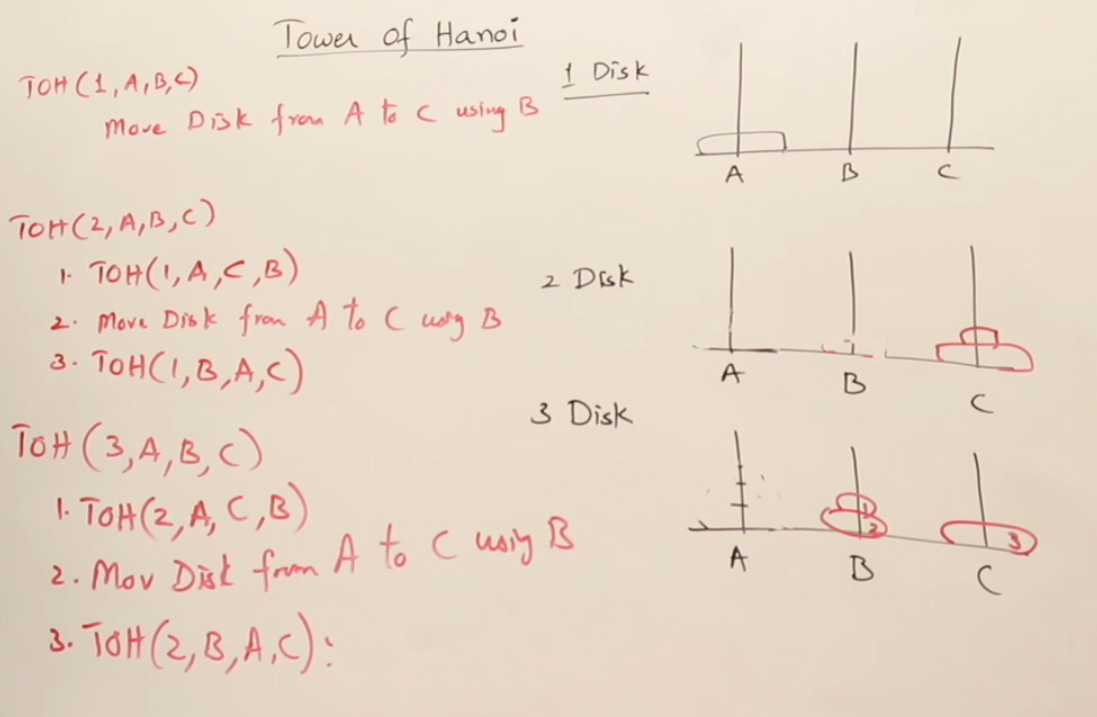 Tower of Hanoi
TOH(1,A,B,C)
Move Disk from A to C using B
1 Disk
A B C
TOH(2,A,B,C)
1. TOH(1,A,C,B)
2. Move Disk from A to C using B
3. TOH(1,B,A,C)
2 Disk
A B C
TOH(3,A,B,C)
1. TOH(2,A,C,B)
2. Mov Disk from A to C using B
3. TOH(2,B,A,C):
3 Disk
1
2
3
A B C